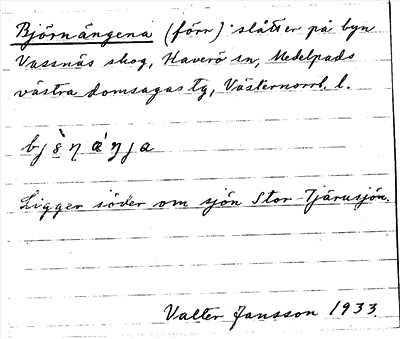 Björnängena (förr) slåtter på byn
Vassnäs skog, Haverö sn, Medelpads
västra domsagas tg, Västernorrl. l.
Ligger söder om sjön Stor-Tjärusjön.
Valter Jansson 1933.